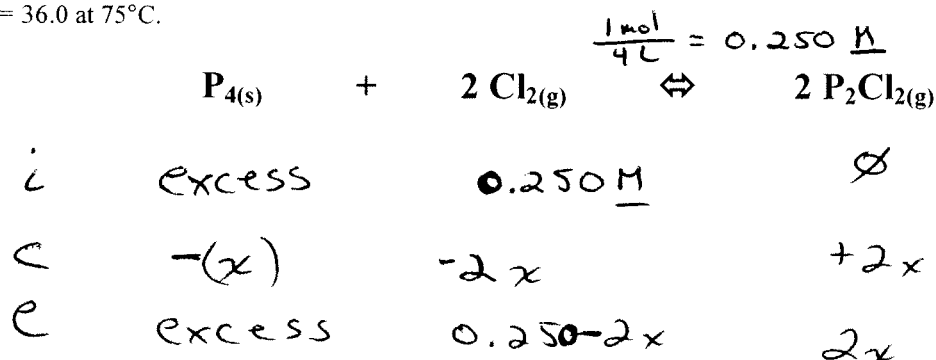 = 36.0 at 75°C.
1 mol / 4 L = 0.250 M
P4(s) + 2 Cl2(g) ⇔ 2 P2Cl2(g)
i excess 0.250 M ∅
c -(x) -2x +2x
e excess 0.250-2x 2x